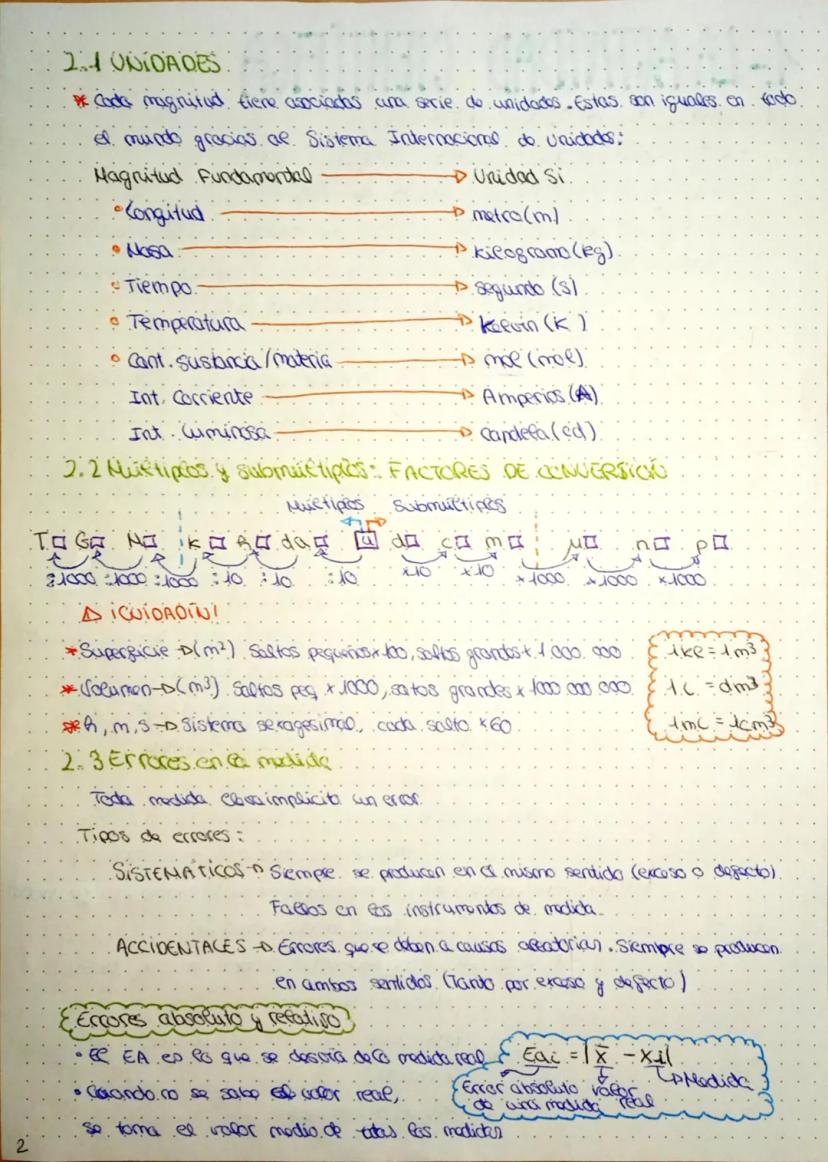 2.1 UNIDADES
* Cada magnitud tiene asociadas una serie de unidades. Estas son iguales en todo
el mundo gracias al Sistema Internacional de Unidades:
Magnitud Fundamental → Unidad Si.
• Longitud → metro (m)
• Masa → kilogramo (kg)
• Tiempo → segundo (s)
• Temperatura → kelvin (K)
• Cant. sustancia/materia → mol (mol)
Int. Corriente → Amperios (A)
Int. Luminosa → Candela (cd)
2.2 Múltiplos y submúltiplos: FACTORES DE CONVERSIÓN
Múltiplos Submúltiplos
T□ G□ M□ k□ h□ da□ u d□ c□ m□ μ□ n□ p□
:1000 :1000 :1000 :10 :10 :10 ×10 ×10 ×1000 ×1000 ×1000
⚠ ¡CUIDADÍN!
* Superficie → (m²) Saltos pequeños × 100, saltos grandes × 1.000.000
* Volumen → (m³) Saltos peq × 1000, saltos grandes × 1000 000 000
* h, m, s → Sistema sexagesimal, cada salto × 60
1kl = 1m³
1L = dm³
1mL = 1cm³
2.3 Errores en la medida
Toda medida lleva implícito un error.
Tipos de errores:
SISTEMÁTICOS → Siempre se producen en el mismo sentido (exceso o defecto)
Fallos en los instrumentos de medida.
ACCIDENTALES → Errores que se deben a causas aleatorias. Siempre se producen
en ambos sentidos (Tanto por exceso y defecto)
Errores absoluto y relativo
• El EA es lo que se desvía de la medida real
• Cuando no se sabe el valor real,
se toma el valor medio de todas las medidas
Eai = |x̄ - xi|
Error absoluto de una medida
valor real
→ Medida
2